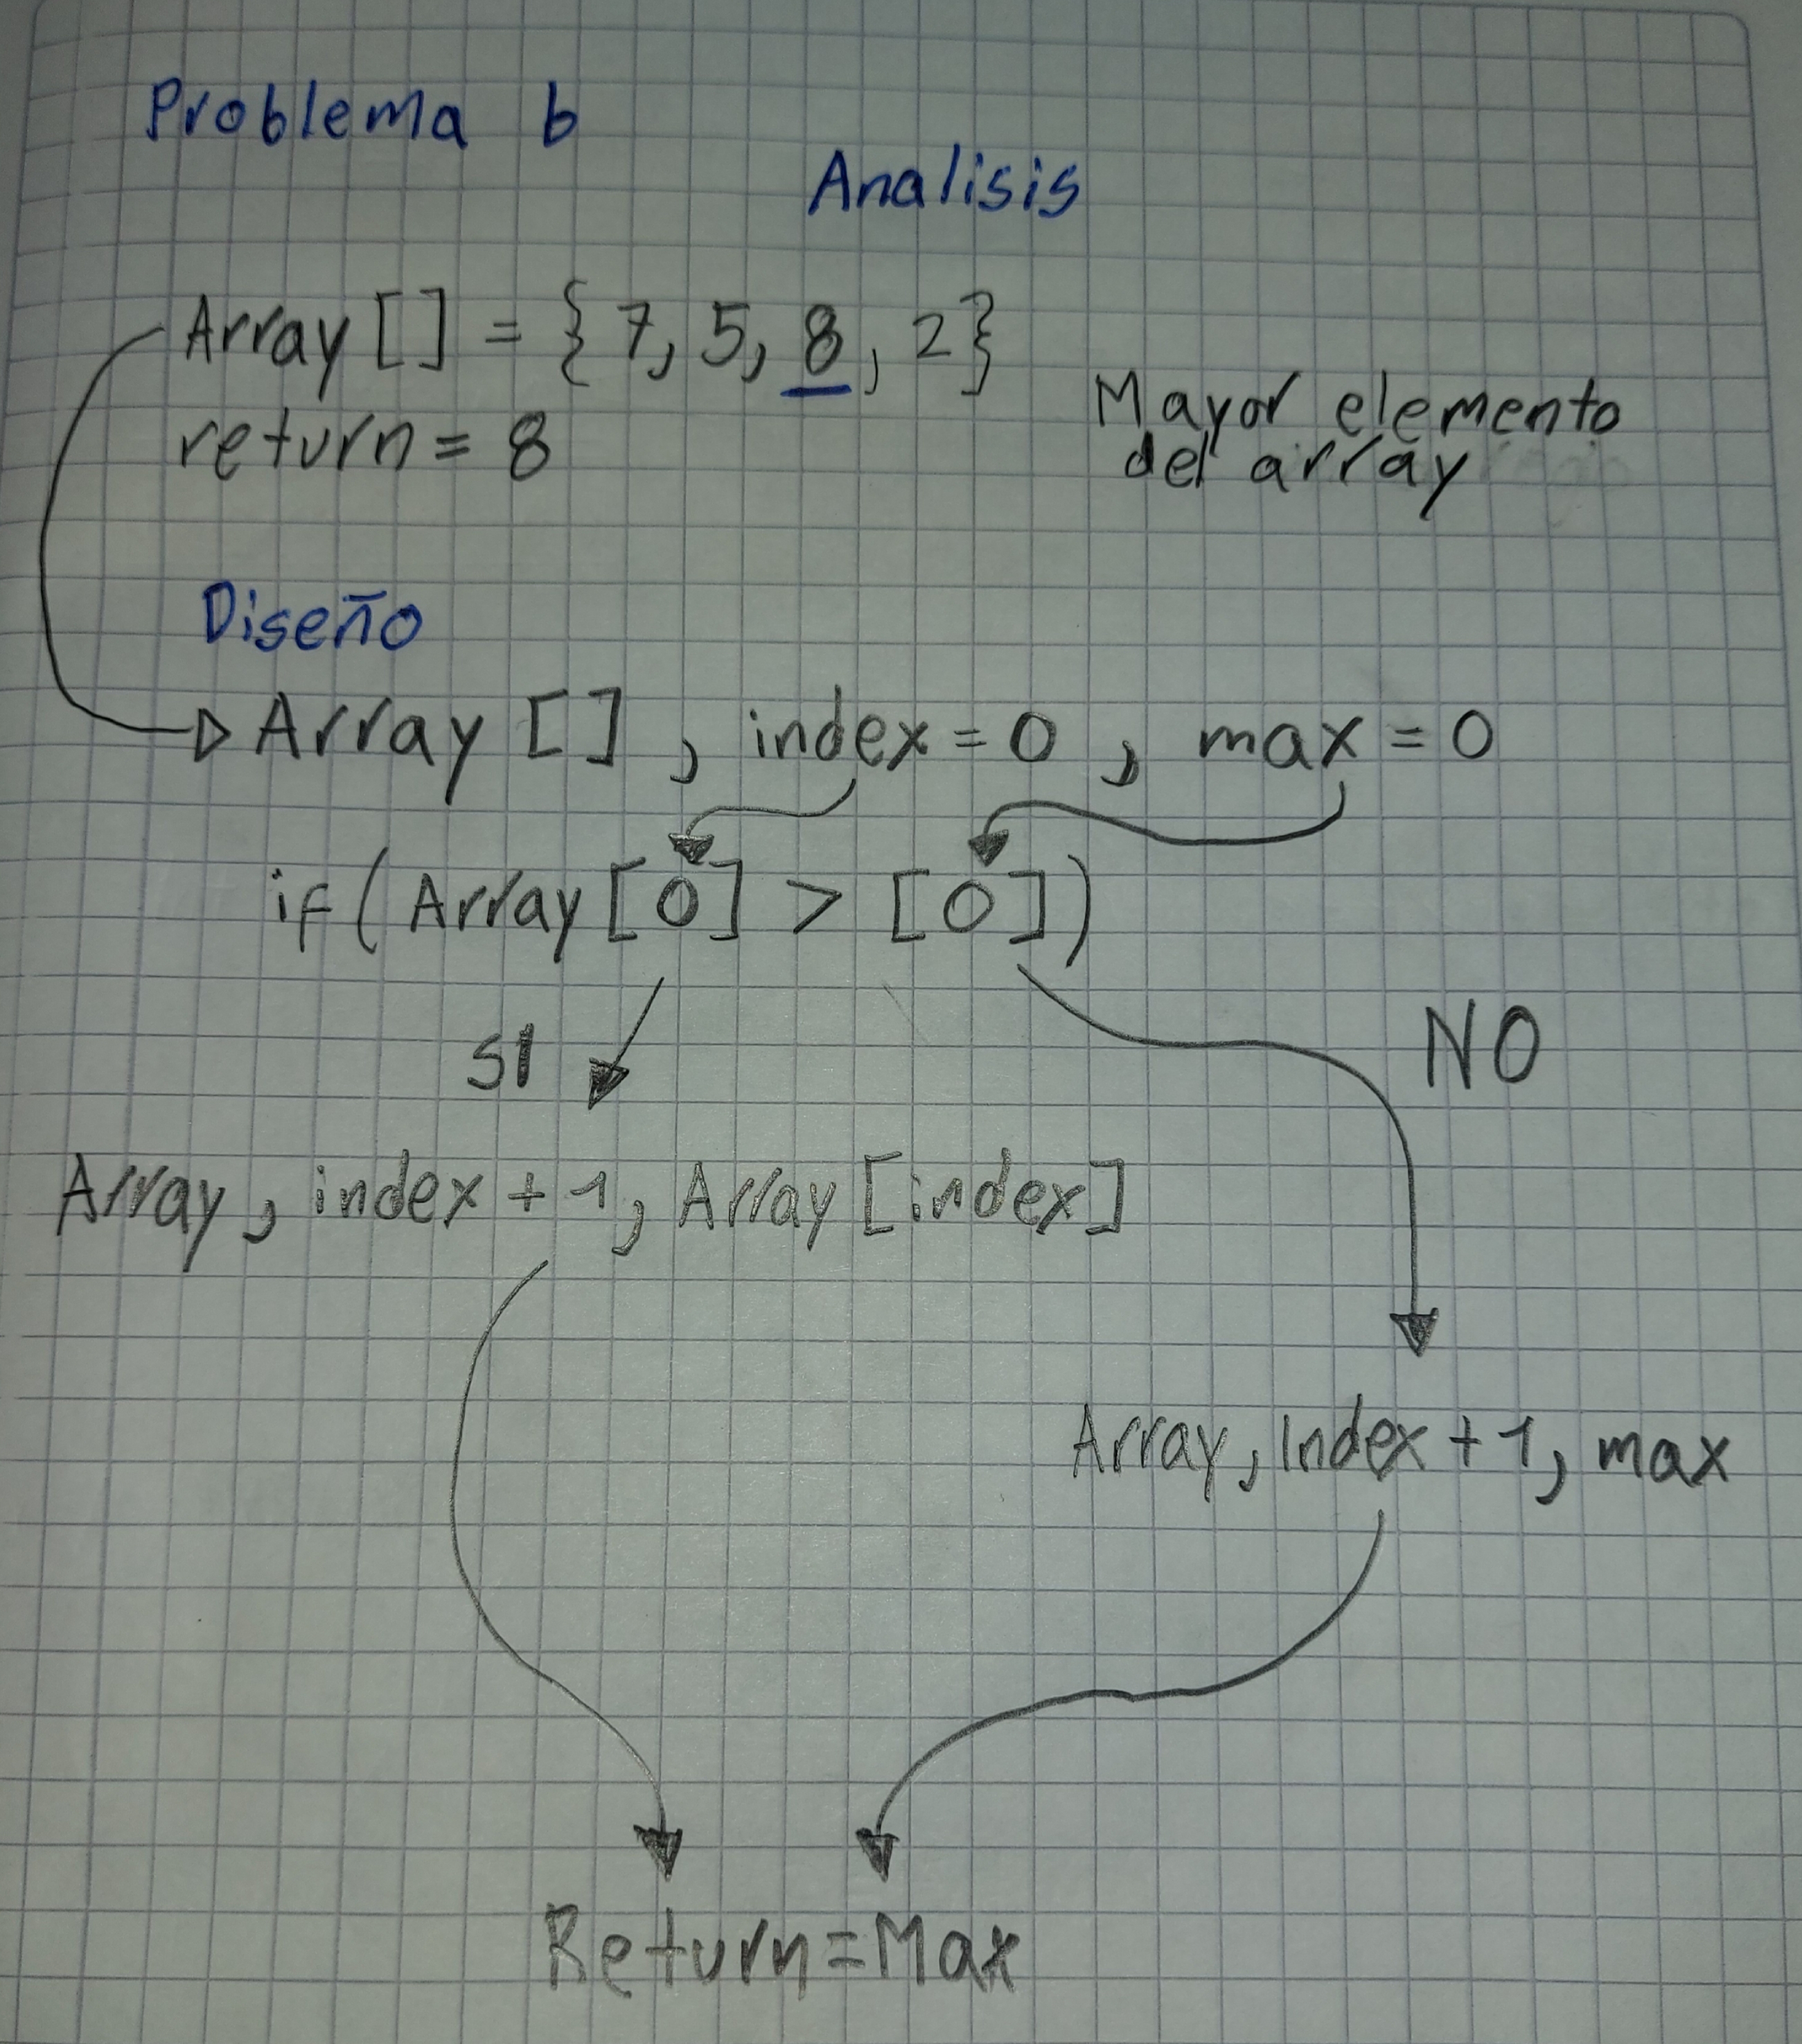 Problema b
Analisis
Array [] = {7, 5, 8, 2}
return = 8
Mayor elemento
del array
Diseño
Array [] , index = 0 , max = 0
if (Array [0] > [0])
SI
NO
Array, index + 1, Array [index]
Array, Index + 1, max
Return = Max